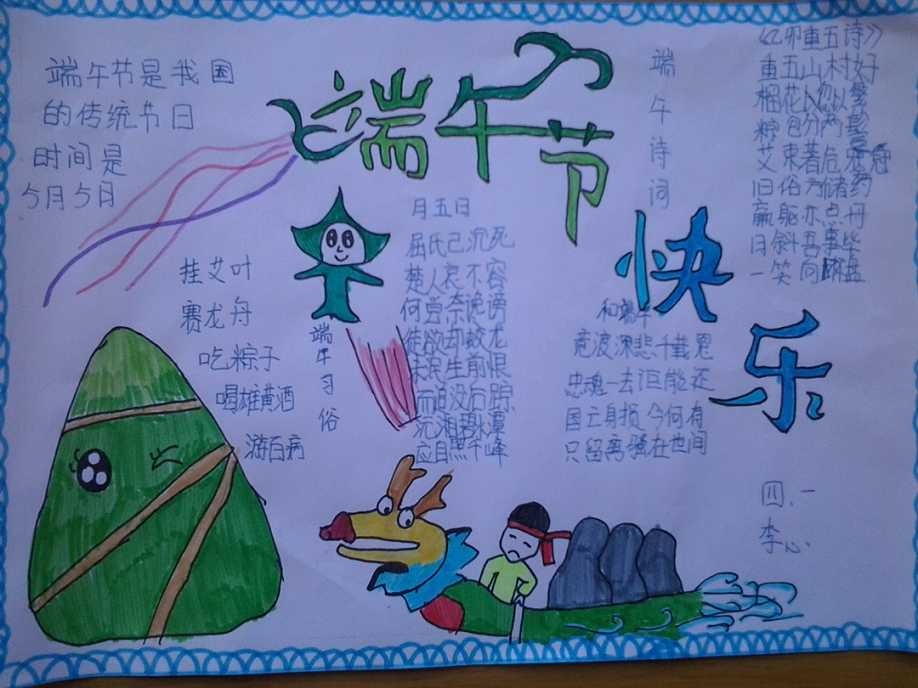 端午节
快乐
端午节是我国
的传统节日
时间是
5月5日
挂艾叶
赛龙舟
吃粽子
喝雄黄酒
游百病
端午习俗
月五日
屈氏已沉死
楚人哀不容
何尝奈谗谤
徒欲却蛟龙
未泯生前恨
而追没后踪
沉湘碧潭
应自照千峰
端午诗词
和端午
竞渡深悲千载冤
忠魂一去讵能还
国亡身损今何有
只留离骚在世间
《乙卯重五诗》
重五山村好
榴花忽以繁
粽包分两
艾束著危冠
旧俗方储药
羸躯亦点丹
日斜吾事毕
一笑向杯盘
四、一
李心